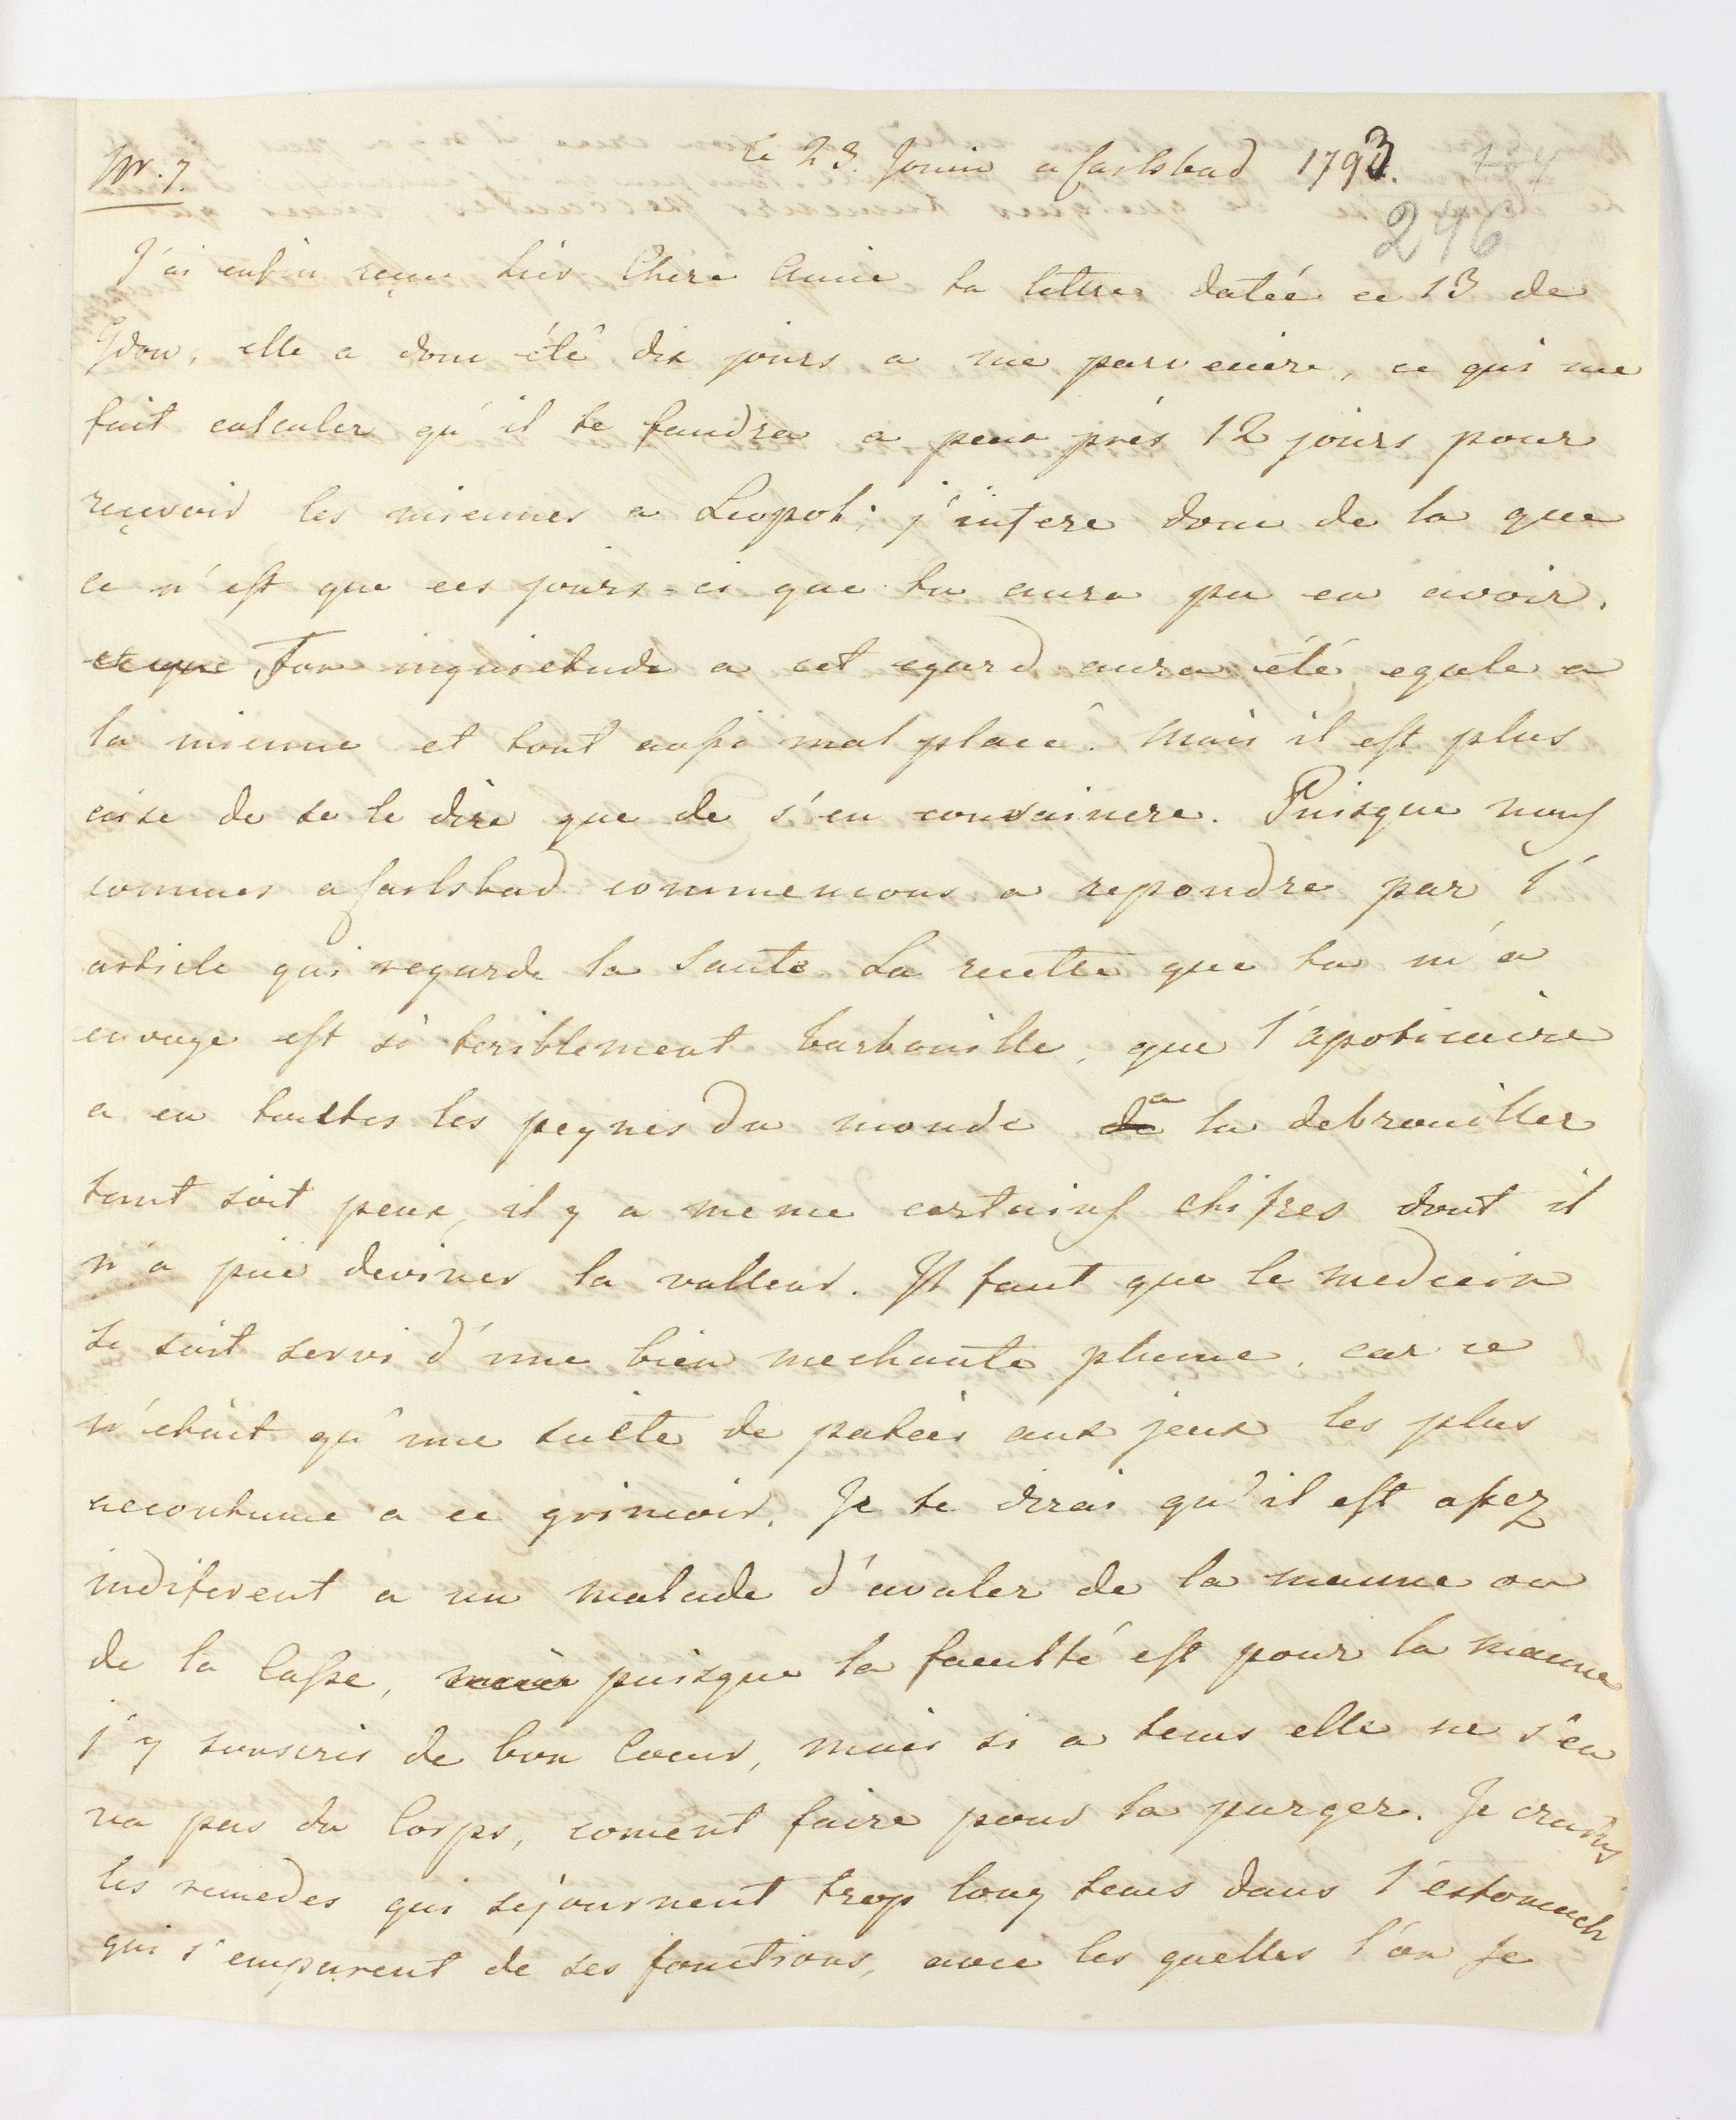 Nr. 7.
Le 23. Jouin a Carlsbad 1793.
246
J'ai enfin reçeu hier Chere Amie ta lettre datée ce 13 de
Gdow, elle a donc été dix jours a me parvenire, ce qui me
fait calculer qu'il te faudra a peux prés 12 jours pour
reçevoir les miennes a Leopol; j'infere donc de la que
ce n'est que ces jours-ci que tu aura pu en avoir.
et que Ton inquietude a cet egard aura été egale a
la mienne et tout aussi mal placé. Mais il est plus
aise de se le dire que de s'en convaincre. Puisque nous
sommes a Carlsbad commencons a repondre par l'
article qui regarde la Sante. La recette que tu m'a
envoye est si teriblement barbouille, que l'apoticaire
a eu touttes les peynes du monde de a la debrouiller
tant soit peux, il y a meme certains chifres dont il
n'a pue deviner la valleur. Il faut que le medecin
se soit servi d'une bien mechante plume, car ce
n'etoit qu'une suite de patées aux jeux les plus
accoutume a ce grimoir. Je te dirai qu'il est assez
indiferent a un malade d'avaler de la manne ou
de la Casse, mais puisque la faculté est pour la manne
j'y souscris de bon Coeur, mais si a tems elle ne s'en
va pas du Corps, coment faire pour la purger. Je crains
les remedes qui sejournent trop long tems dans l'estomach
qui s'emparent de ses fonctions, avec les quelles l'on se